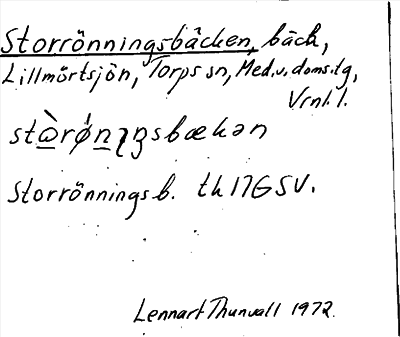 Storrönningsbäcken, bäck,
Lillmörtsjön, Torps sn, Med. v. doms.tg,
Vrnl. l.
stὼrǿnıŋsbækən
Storrönnings b. tk 17G SV.
Lennart Thunvall 1972.